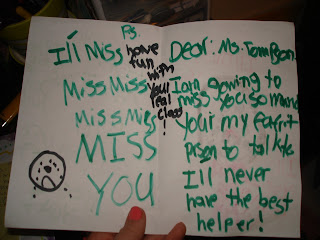 Ps.
I'll Miss
Miss Miss
Miss Miss
MISS
YOU
have
fun
with
your
real
class
!
Dear: Ms. Tompson
I am gowing to
miss you so mand
your my favrit
prson to talk to
I'll never
have the best
helper!